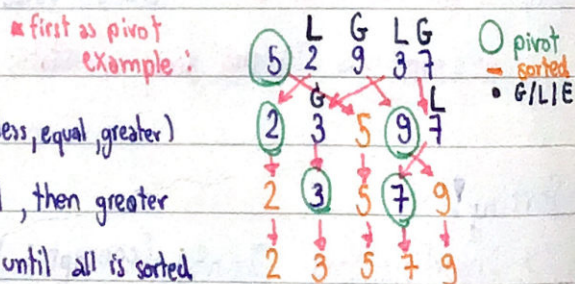 * first as pivot
L G L G
example: 5 2 9 3 7
pivot
sorted
G/L/E
G L
ess, equal, greater) 2 3 5 9 7
, then greater 2 3 5 7 9
until all is sorted 2 3 5 7 9